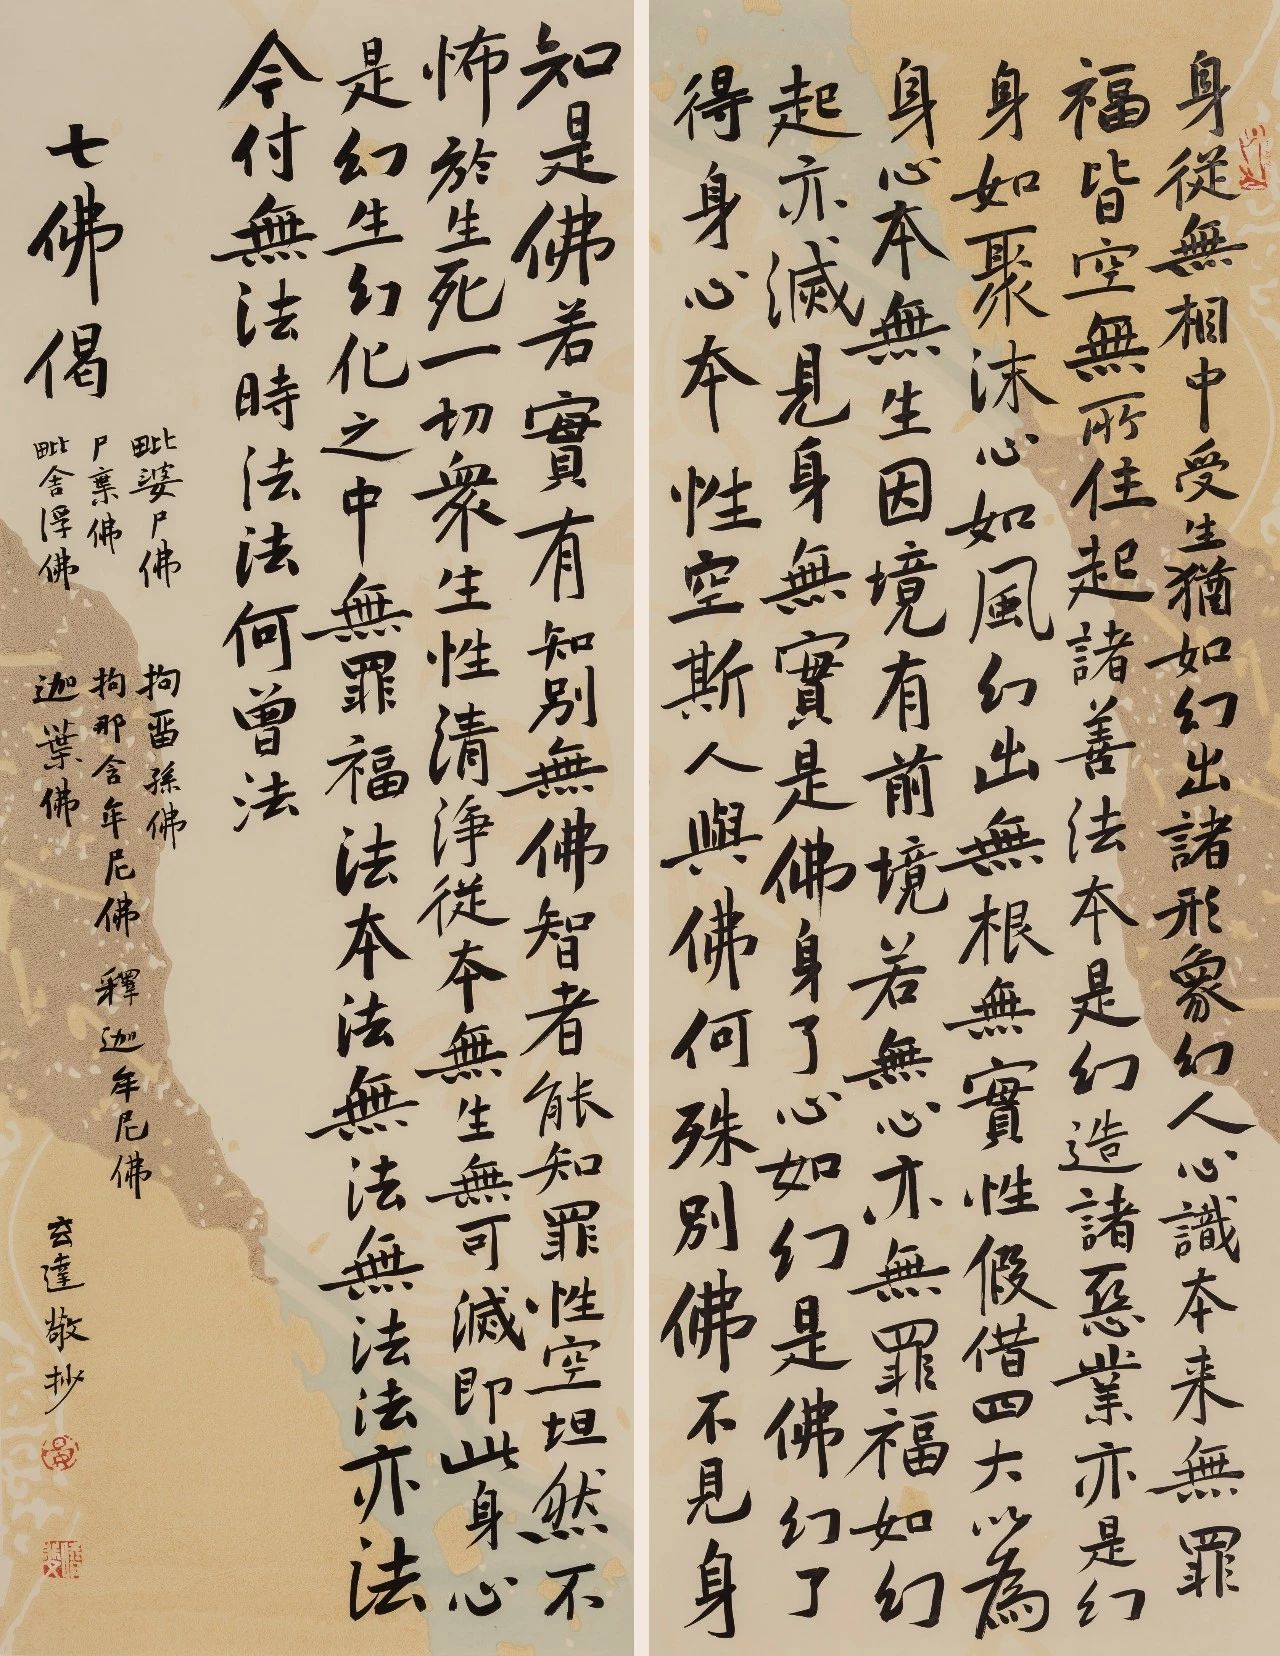 身從無相中受生猶如幻出諸形象幻人心識本来無罪
福皆空無所住起諸善法本是幻造諸惡業亦是幻
身如聚沫心如風幻出無根無實性假借四大以為
身心本無生因境有前境若無心亦無罪福如幻
起亦滅見身無實是佛身了心如幻是佛幻了
得身心本性空斯人與佛何殊別佛不見身
知是佛若實有知別無佛智者能知罪性空坦然不
怖於生死一切衆生性清淨從本無生無可滅即此身心
是幻生幻化之中無罪福法本法無法無法法亦法
今付無法時法法何曾法
七佛偈
毗婆尸佛
尸棄佛
毗舍浮佛
拘畱孫佛
拘那含牟尼佛
迦葉佛
釋迦牟尼佛
玄達敬抄